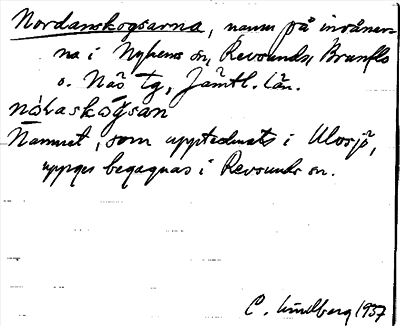 Nordanskogsarna, namn på invånar-
na i Nyhems sn, Revsunds, Brunflo
o. Näs tg, Jämtl. län.
nơraskógsan
Namnet, som upptecknats i Ulvsjö,
uppges begagnas i Revsunds sn.
C. Lindberg 1937